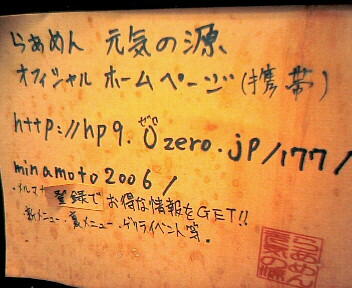 らぁめん 元気の源、
オフィシャル ホームページ(携帯)
ゼロ
http://hp9.0zero.jp/177/
minamoto2006/
・メルマガ登録でお得な情報をGET!!
新メニュー・裏メニュー・ゲリライベント等。
らあめん
元気の源